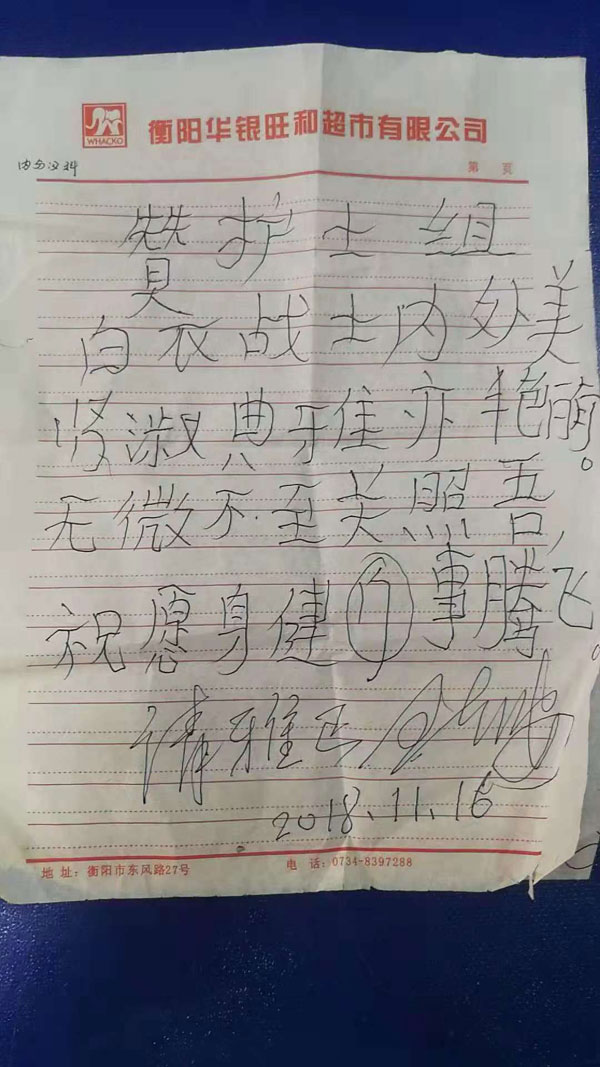 WHACKO
衡阳华银旺和超市有限公司
内分泌科
第 页
赞护士组
白衣战士内外美
贤淑典雅亦艳丽。
无微不至关照吾,
祝愿身健事腾飞。
请雅正
2018.11.16
地 址:衡阳市东风路27号
电 话:0734-8397288